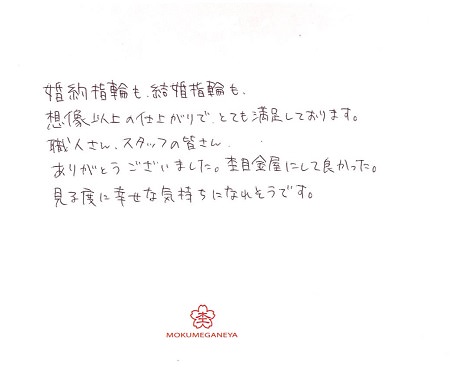 婚約指輪も、結婚指輪も、
想像以上の仕上がりで、とても満足しております。
職人さん、スタッフの皆さん、
ありがとうございました。杢目金屋にして良かった。
見る度に幸せな気持ちになれそうです。
杢
MOKUMEGANEYA